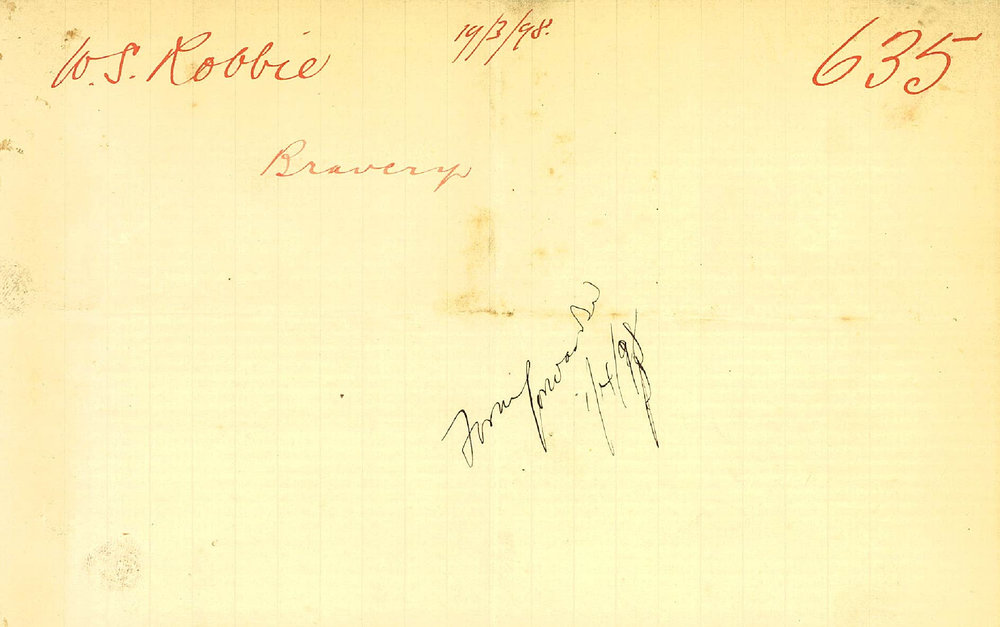 W.S. Robbie 19/3/98. 635
Bravery
Form forwarded
1/4/98